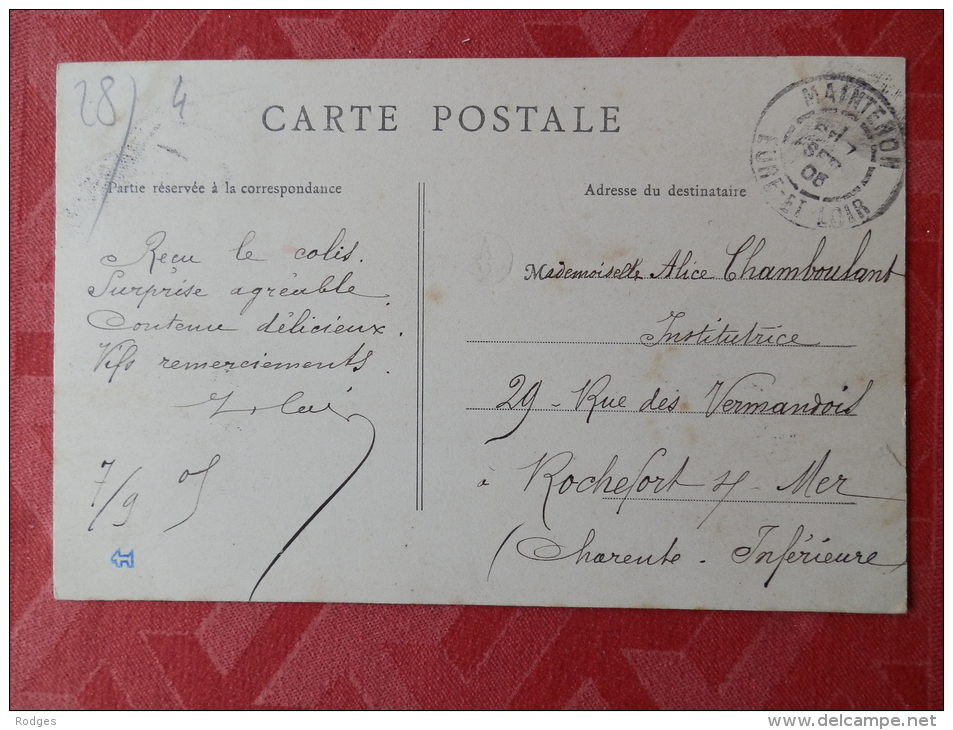 28) 4
CARTE POSTALE
MAINTENON
7
SEPT
05
EURE-ET-LOIR
Partie réservée à la correspondance
Adresse du destinataire
Reçu le colis.
Surprise agréable.
Contenu délicieux.
Vifs remerciements.
7/9 05
Mademoiselle Alice Chamboulant
Institutrice
29 - Rue des Vermandois
à Rochefort s/- Mer
(Charente - Inférieure
Rodges
delcampe.net